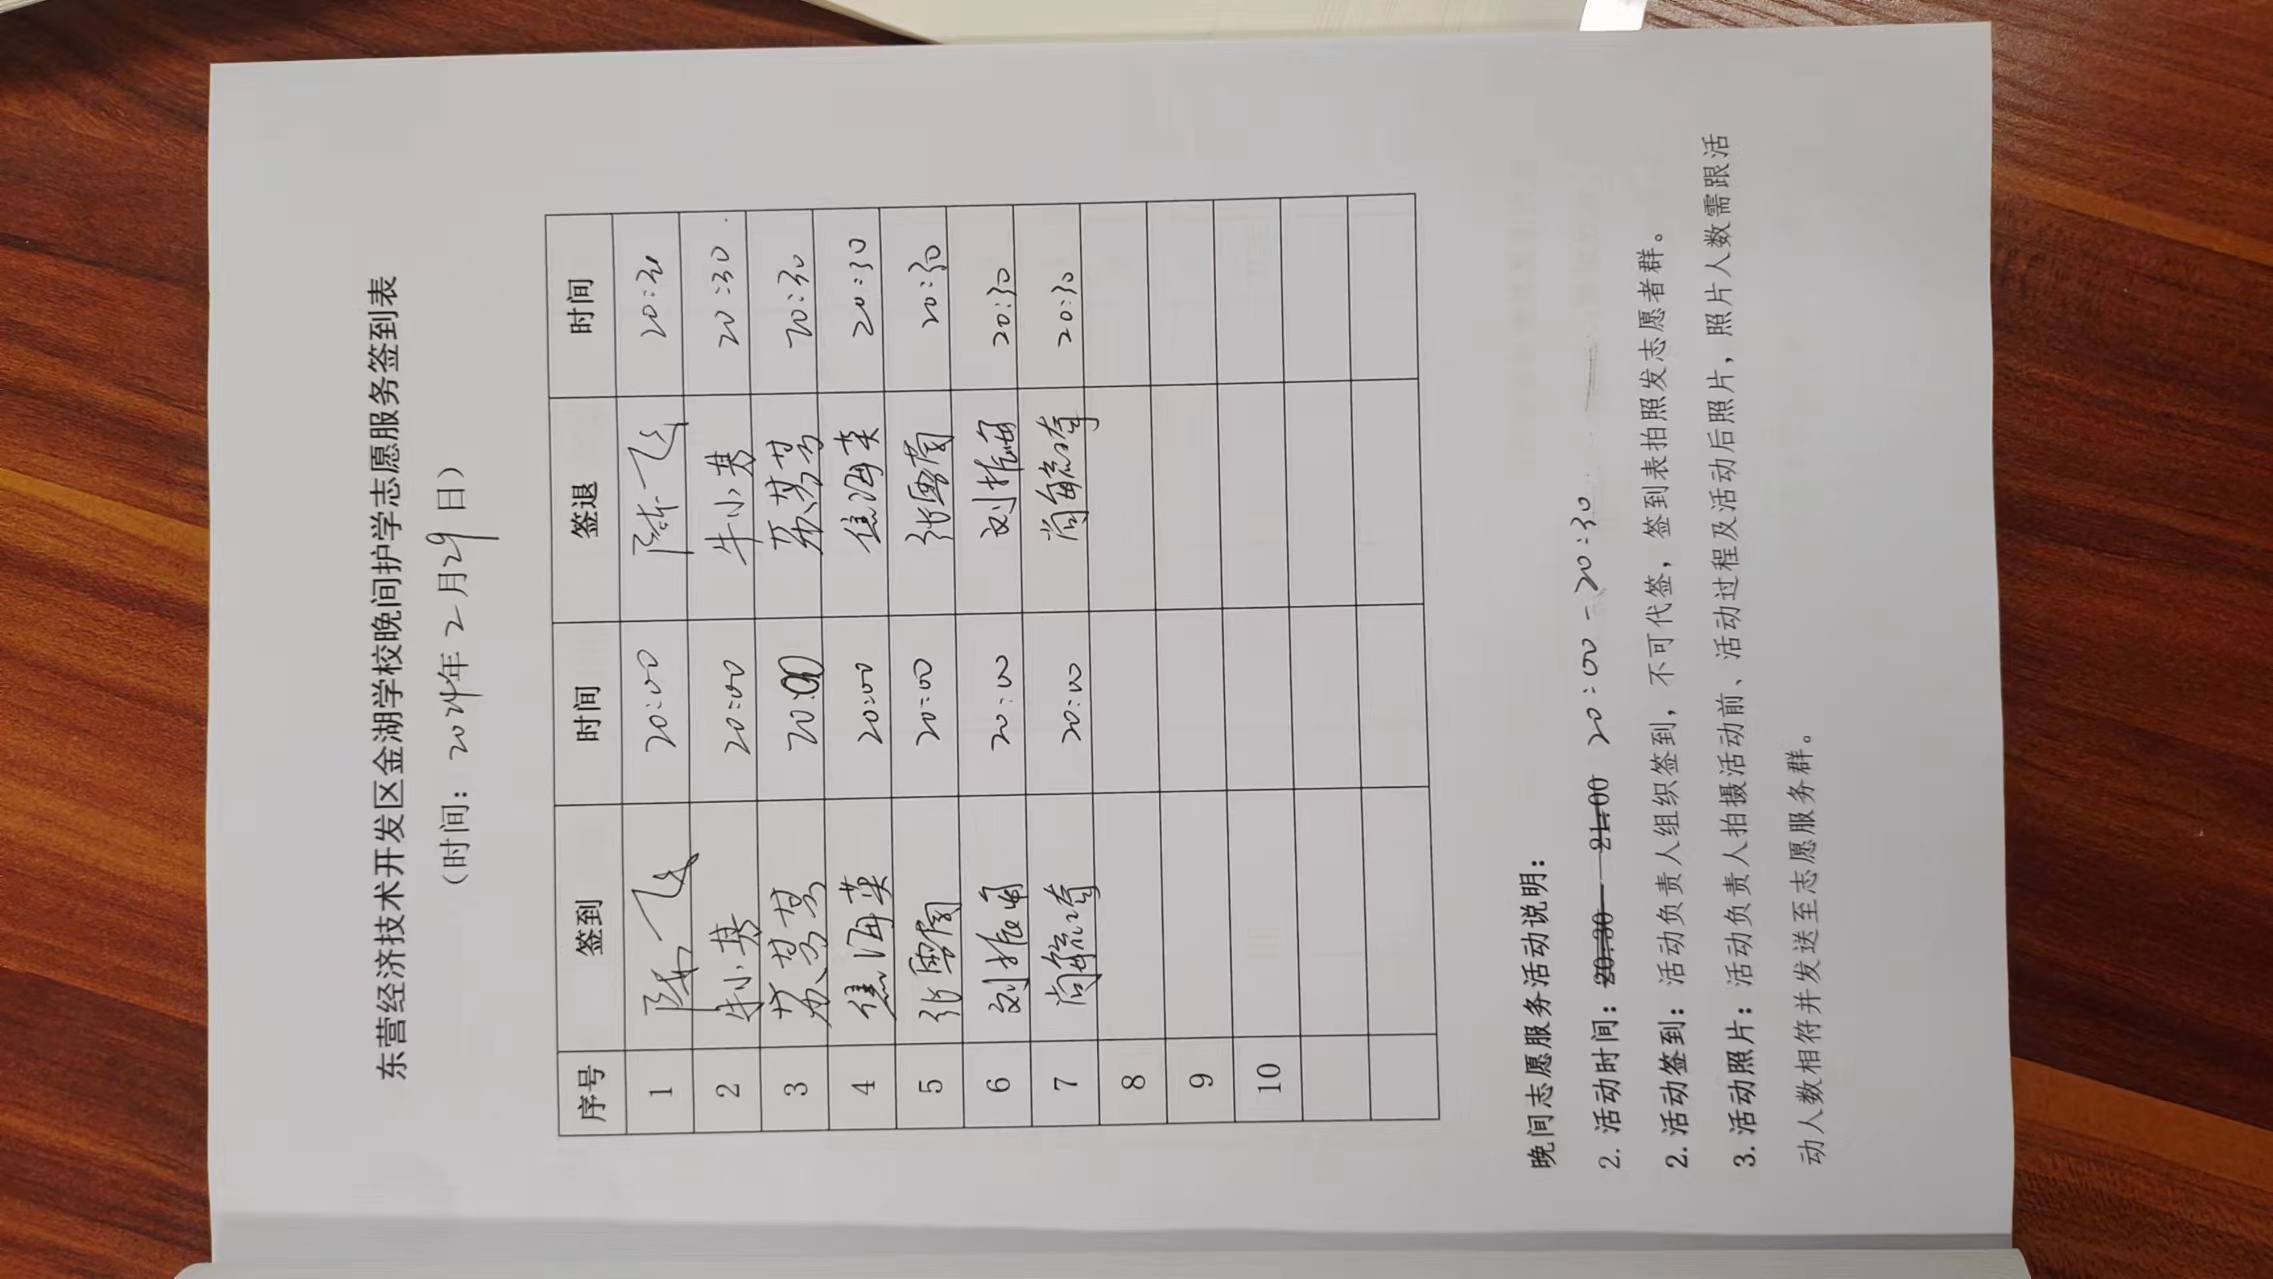 东营经济技术开发区金湖学校晚间护学志愿服务签到表
（时间：2024年2月29日）
序号 签到 时间 签退 时间
1 陈飞 20:00 陈飞 20:30
2 牛小英 20:00 牛小英 20:30
3 苏芳芳 20:00 苏芳芳 20:30
4 焦海英 20:00 焦海英 20:30
5 张雪 20:00 张雪 20:30
6 刘振海 20:00 刘振海 20:30
7 尚毓 20:00 尚毓 20:30
8
9
10
晚间志愿服务活动说明：
2. 活动时间：20:30—21:00 20:00-20:30
2. 活动签到：活动负责人组织签到，不可代签，签到表拍照发志愿者群。
3. 活动照片：活动负责人拍摄活动前、活动过程及活动后照片，照片人数需跟活
动人数相符并发送至志愿服务群。